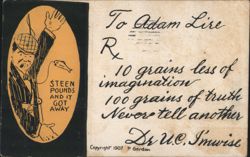 STEEN
POUNDS
AND IT
GOT
AWAY
To Adam Lire
Rx
10 grains less of
imagination
100 grains of truth
Never tell another
Dr U.C. Imwise
Copyright 1907 P Gordon